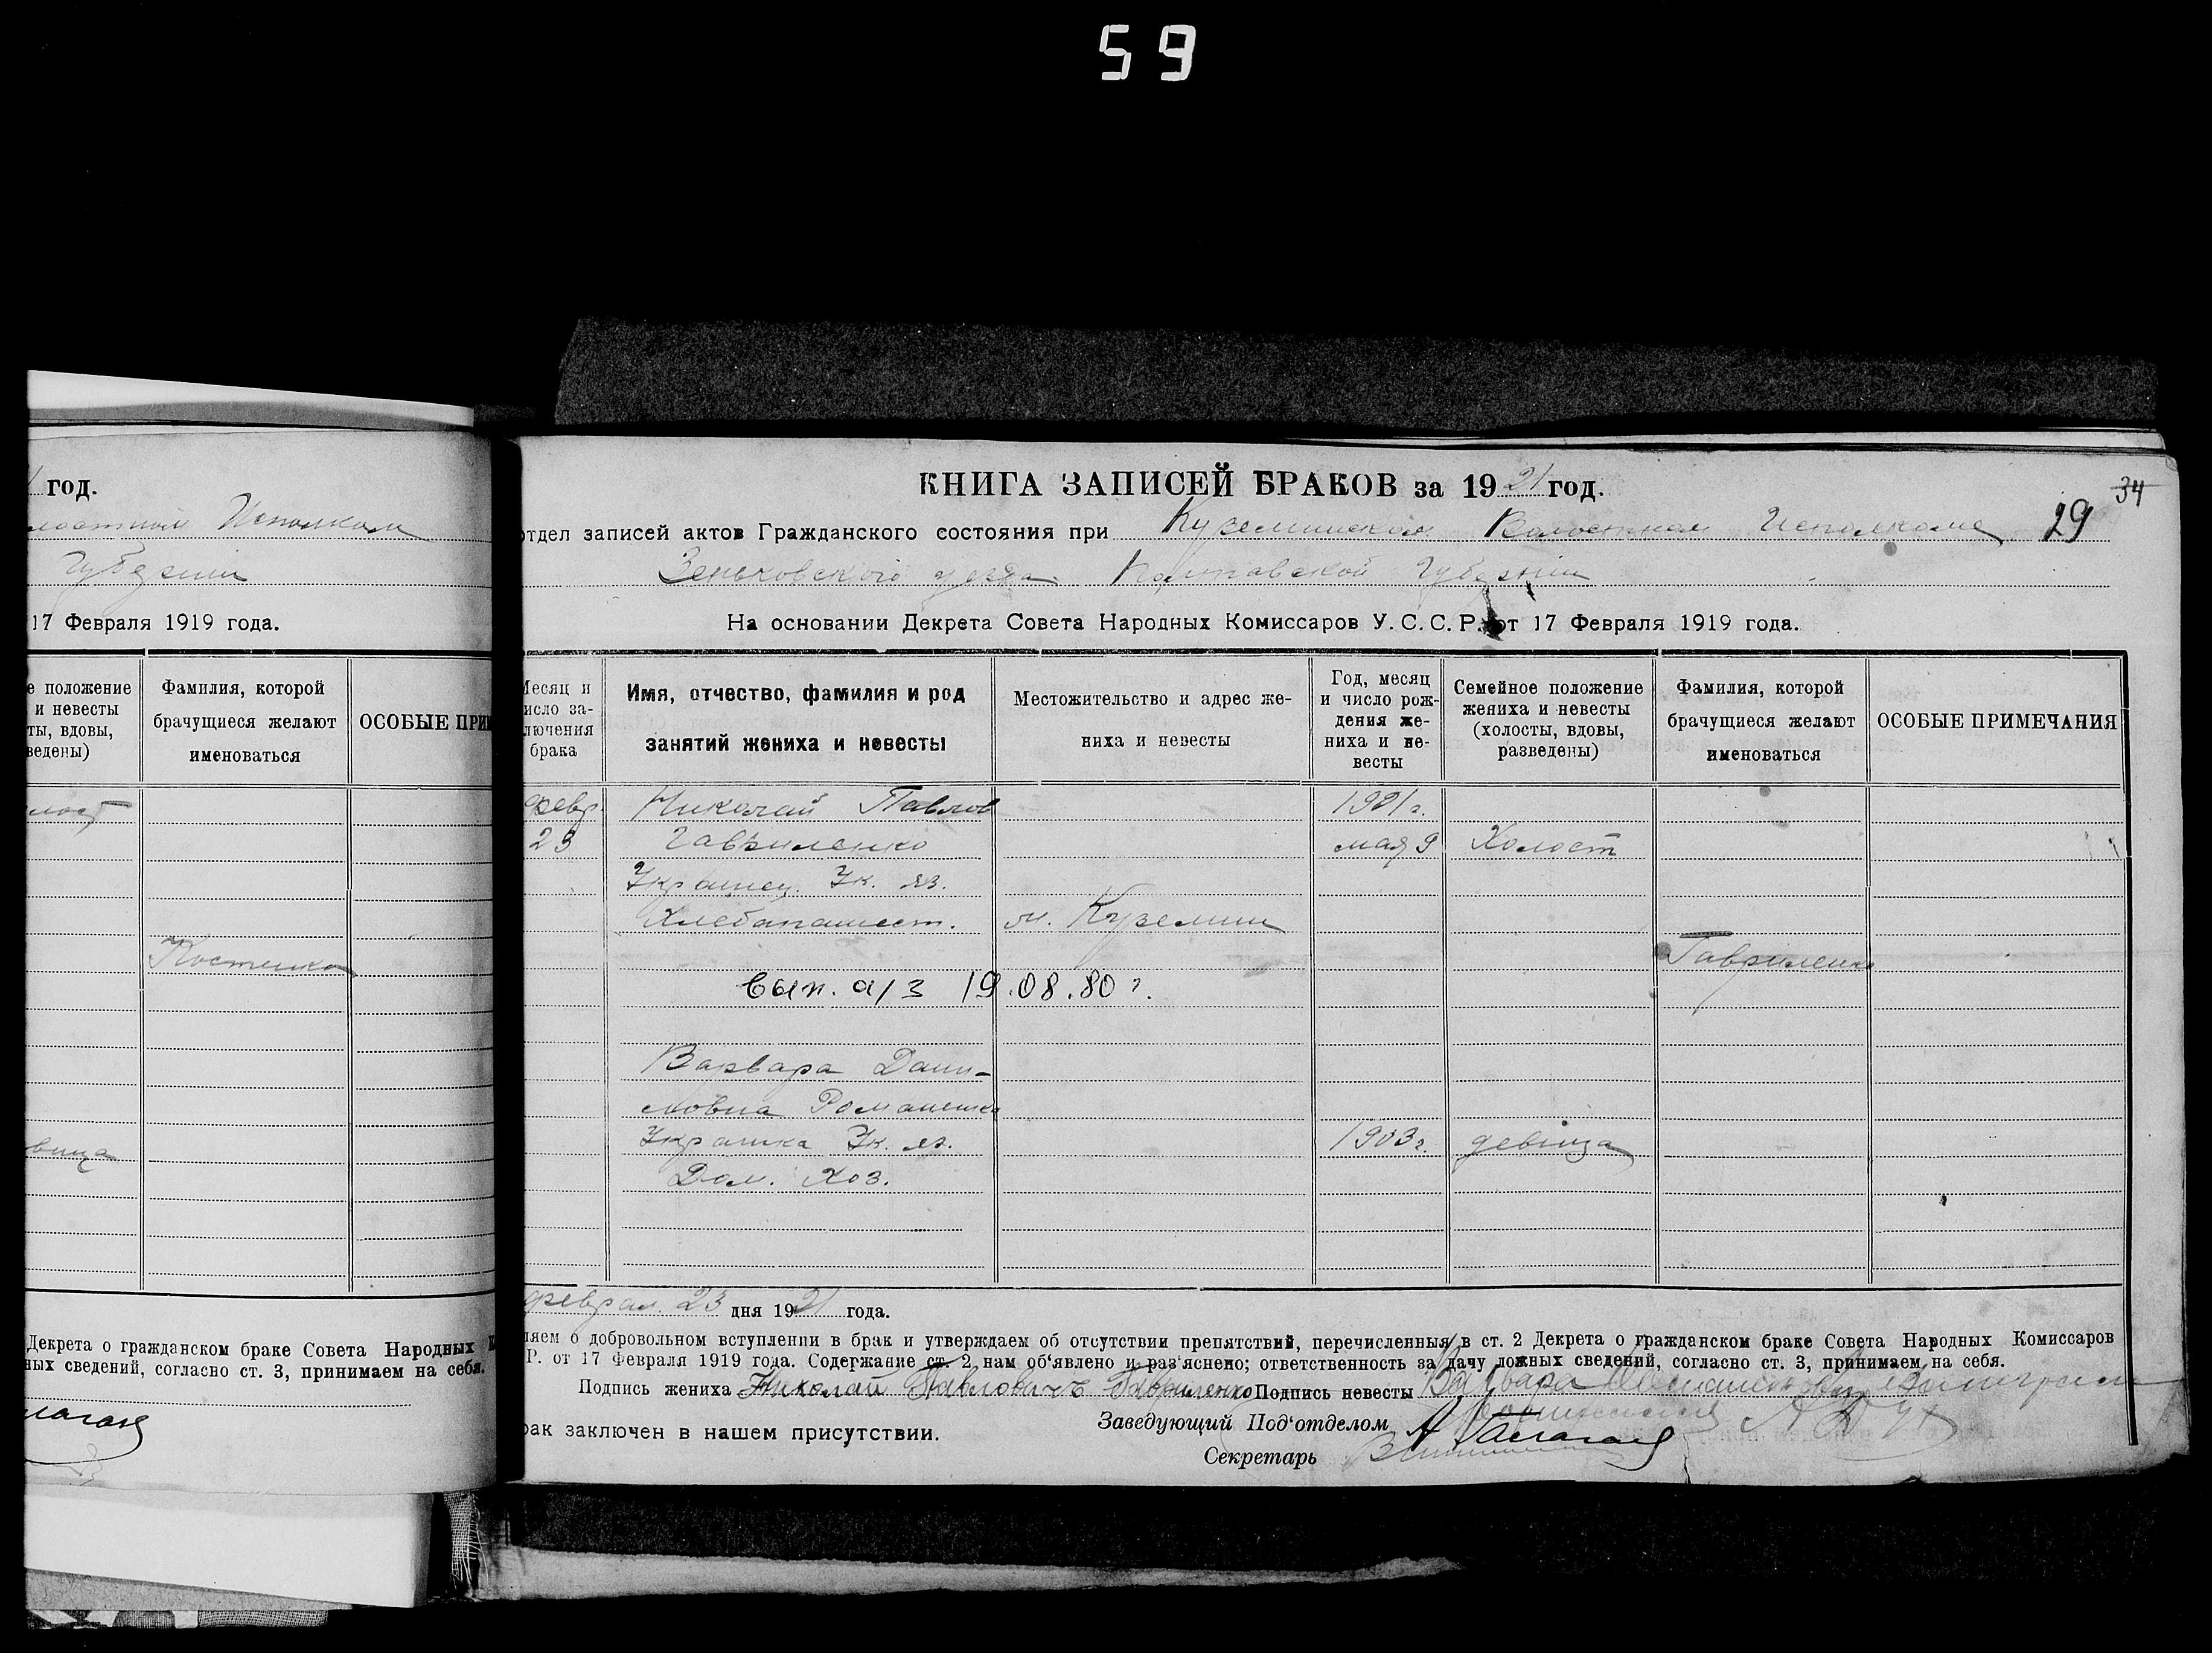 59
год.
Исполком
Губернии
17 Февраля 1919 года.
е положение
и невесты
ты, вдовы,
ведены)
Фамилия, которой
брачущиеся желают
именоваться
ОСОБЫЕ ПРИ
Костенко
вица
Декрета о гражданском браке Совета Народных
ных сведений, согласно ст. 3, принимаем на себя.
КНИГА ЗАПИСЕЙ БРАКОВ за 1921 год.
34
отдел записей актов Гражданского состояния при Куземинском Волостном Исполкоме
29
Зеньковского уезда Полтавской Губернии
На основании Декрета Совета Народных Комиссаров У.С.С.Р. от 17 Февраля 1919 года.
Месяц и
число за-
лючения
брака
Имя, отчество, фамилия и род
занятий жениха и невесты
Местожительство и адрес же-
ниха и невесты
Год, месяц
и число рож-
дения же-
ниха и не-
весты
Семейное положение
жениха и невесты
(холосты, вдовы,
разведены)
Фамилия, которой
брачущиеся желают
именоваться
ОСОБЫЕ ПРИМЕЧАНИЯ
февр. Николай Павлов 1901 г.
23 Гавриленко мая 9 Холост
Украинец. Ук. яз.
Хлебопашест. м. Куземин
Гавриленко
вып. а/з 19.08.80 г.
Варвара Дани-
ловна Романенко
Украинка Ук. яз. 1903 г. девица
Дом. Хоз.
феврал. 23 дня 1921 года.
ляем о добровольном вступлении в брак и утверждаем об отсутствии препятствий, перечисленных в ст. 2 Декрета о гражданском браке Совета Народных Комиссаров
Р. от 17 Февраля 1919 года. Содержание ст. 2 нам об'явлено и раз'яснено; ответственность за дачу ложных сведений, согласно ст. 3, принимаем на себя.
Подпись жениха Николай Павловичъ Гавриленко Подпись невесты Варвара
Заведующий Под'отделом
рак заключен в нашем присутствии.
Секретарь